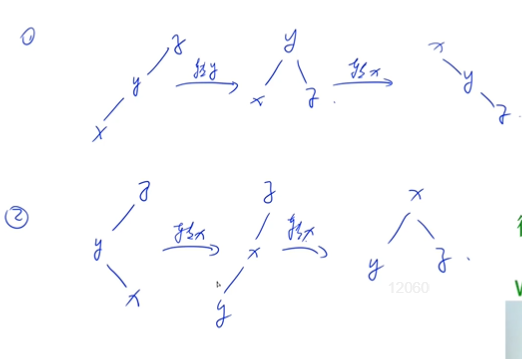 ①
z
y
x
转y
y
x z
转x
x
y
z
②
z
y
x
转x
z
x
y
转x
x
y z
12060